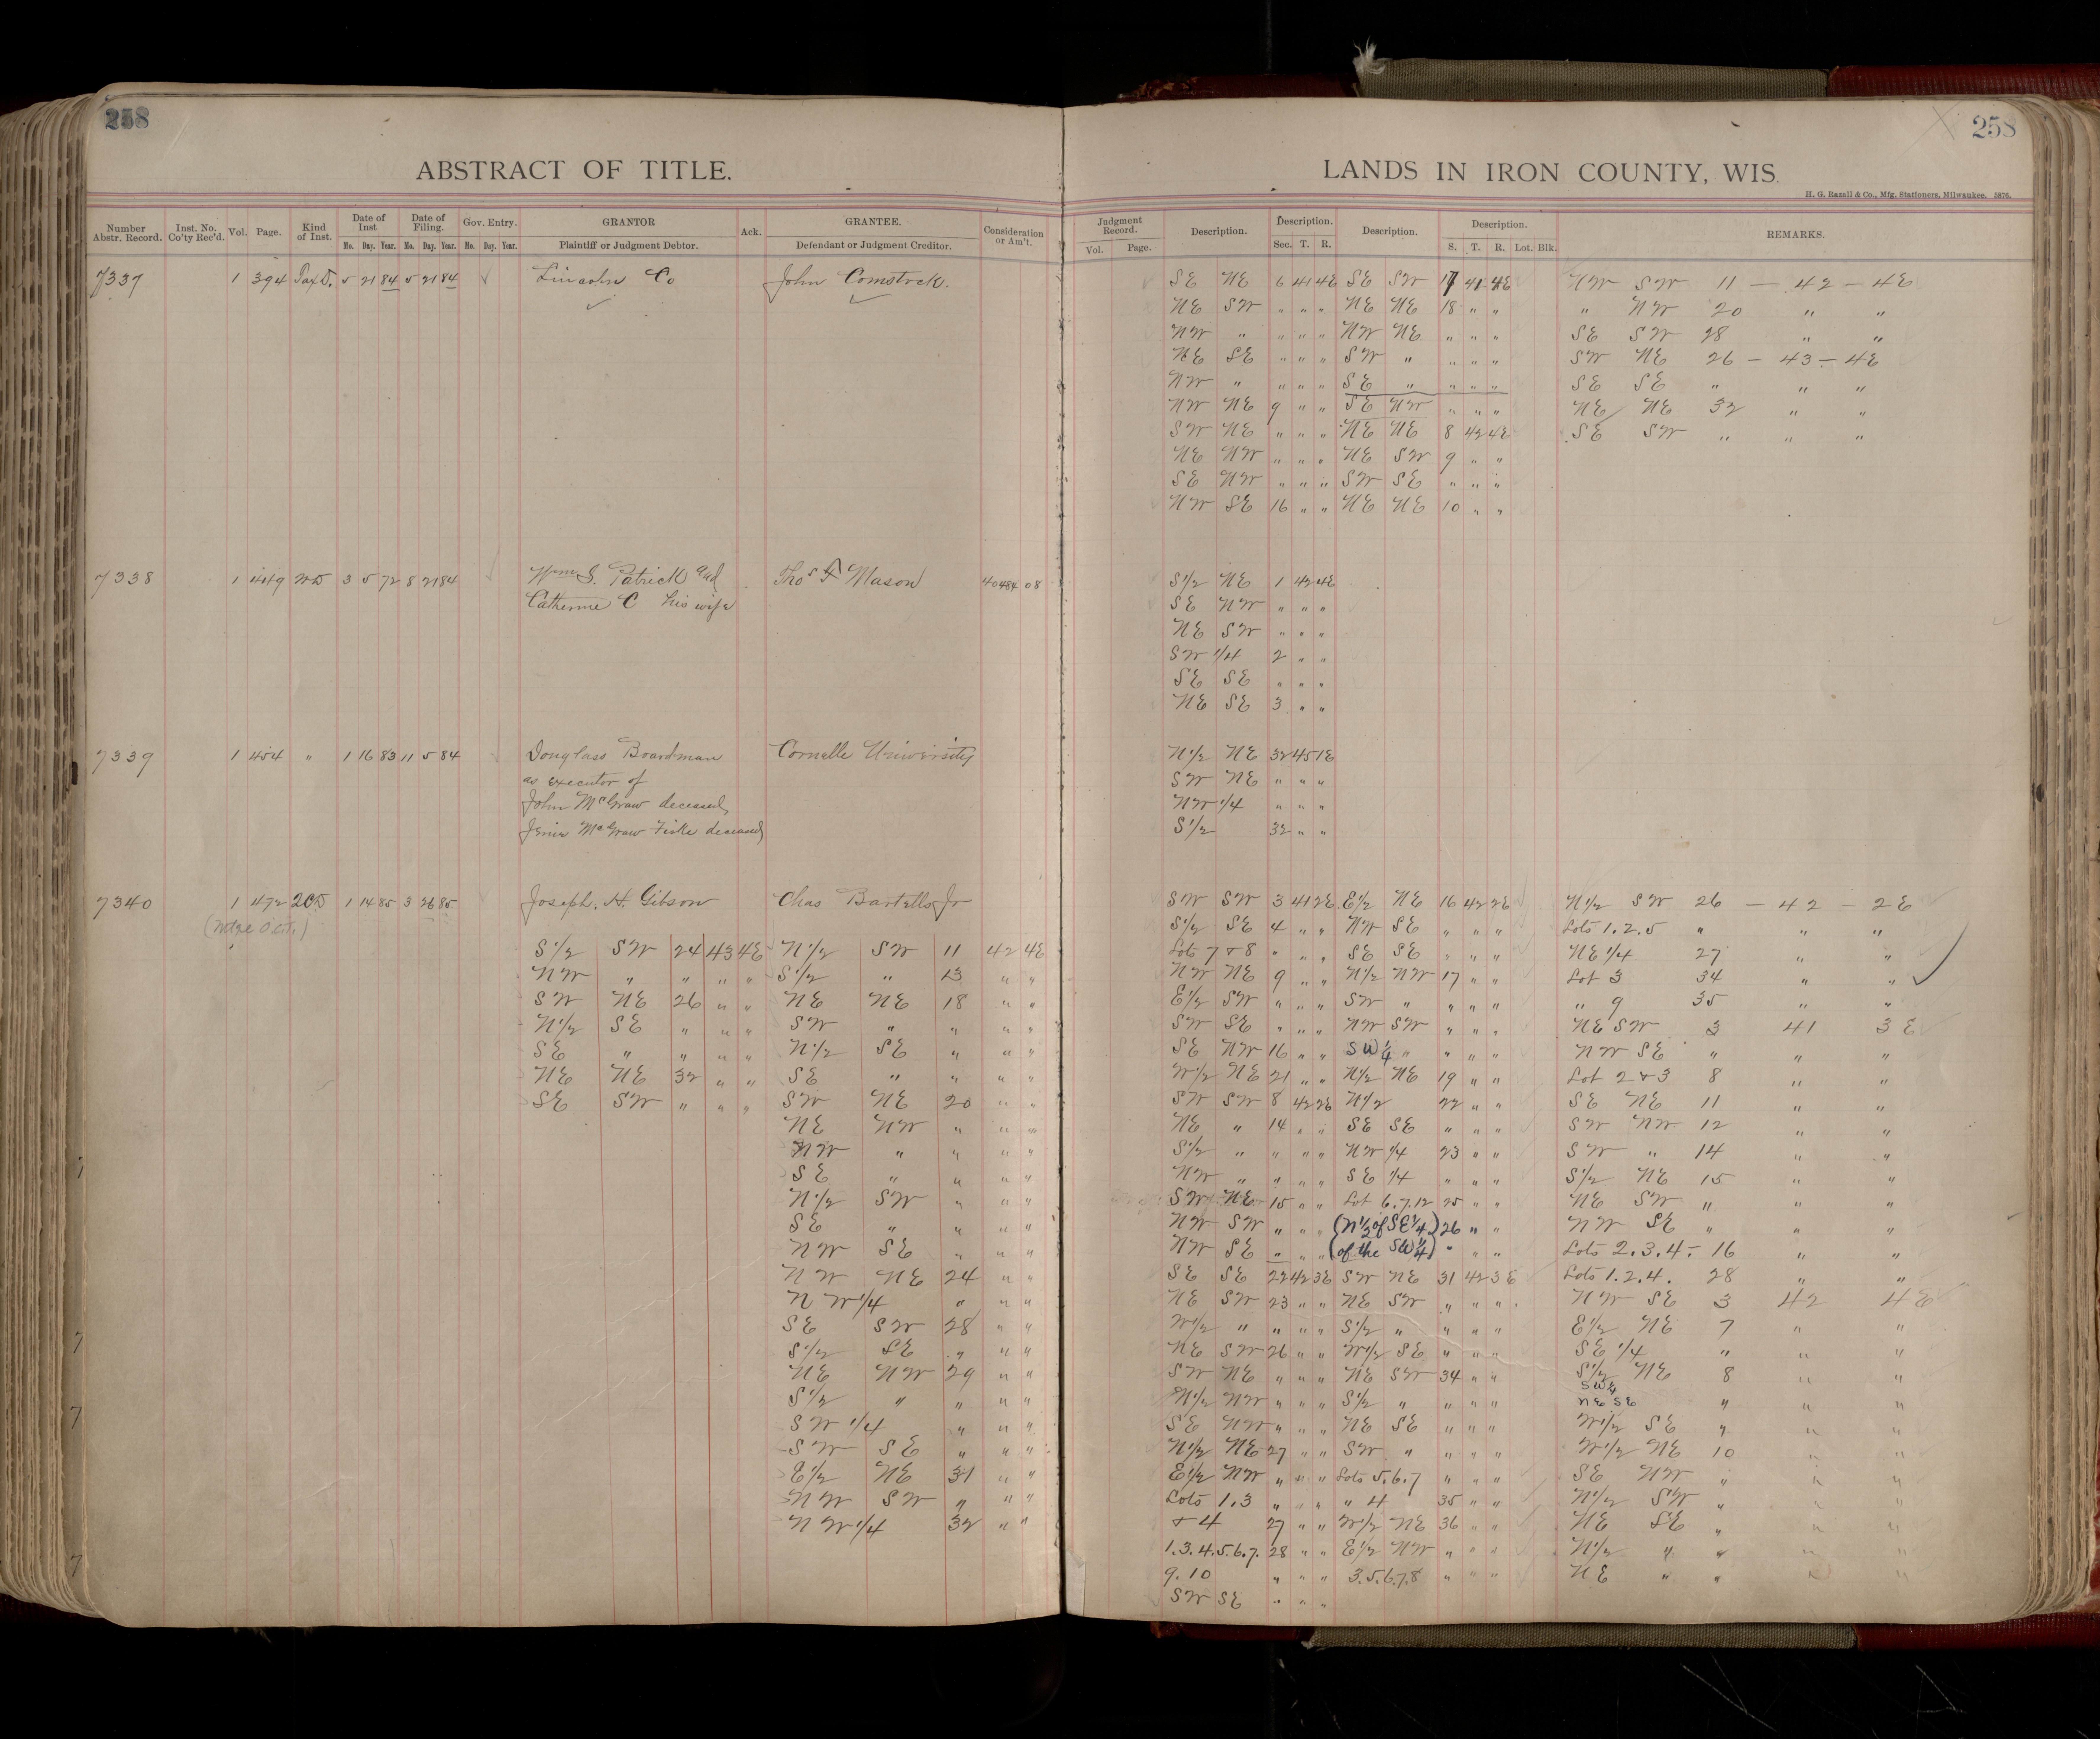 258
ABSTRACT OF TITLE.
Number Abstr. Record. Inst. No. Co'ty Rec'd. Vol. Page. Kind of Inst. Date of Inst Mo. Day. Year. Date of Filing. Mo. Day. Year. Gov. Entry. Mo. Day. Year. GRANTOR Plaintiff or Judgment Debtor. Ack. GRANTEE. Defendant or Judgment Creditor. Consideration or Am't.
7337 1 394 Tax D. 5 21 84 5 21 84 Lincoln Co John Comstock.
7338 1 449 WD 3 5 72 8 21 84 Wm S. Patrick and Thos F Mason 40484 08
Catherine C his wife
7339 1 454 " 1 16 83 11 5 84 Douglass Boardman Cornelle University
as executor of
John McGraw deceased,
Jenie McGraw Fiske deceased
7340 1 472 2CD 1 14 85 3 26 85 Joseph. H. Gibson Chas Bartells Jr
S1/2 SW 24 43 4E N1/2 SW 11 42 4E
NW " " " " S1/2 " 13 " "
SW NE 26 " " NE NE 18 " "
N1/2 SE " " " SW " " " "
SE " " " " N1/2 SE " " "
NE NE 32 " " SE " " " "
SE SW " " " SW NE 20 " "
NE NW " " "
NW " " " "
SE " " " "
N1/2 SW " " "
SE " " " "
NW SE " " "
NW NE 24 " "
NW1/4 " " "
SE SW 28 " "
S1/2 SE " " "
NE NW 29 " "
S1/2 " " " "
SW 1/4 " " "
SW SE " " "
E1/2 NE 31 " "
NW SW " " "
NW1/4 32 " "
258
LANDS IN IRON COUNTY, WIS.
H. G. Razall & Co., Mfg. Stationers, Milwaukee. 5876.
Judgment Record. Vol. Page. Description. Description. Sec. T. R. Description. Description. S. T. R. Lot. Blk. REMARKS.
SE NE 6 41 4E SE SW 17 41 4E NW SW 11 — 42 — 4E
NE SW " " " NE NE 18 " " " NW 20 " "
NW " " " " NW NE " " " SE SW 28 " "
NE SE " " " SW " " " " SW NE 26 — 43 — 4E
NW " " " " SE " " " " SE SE " " "
NW NE 9 " " SE NW " " " NE NE 32 " "
SW NE " " " NE NE 8 42 4E SE SW " " "
NE NW " " " NE SW 9 " "
SE NW " " " SW SE " " "
NW SE 16 " " NE NE 10 " "
S1/2 NE 1 42 4E
SE NW " " "
NE SW " " "
SW 1/4 2 " "
SE SE " " "
NE SE 3 " "
N1/2 NE 32 45 1E
SW NE " " "
NW 1/4 " " "
S1/2 32 " "
SW SW 3 41 2E E1/2 NE 16 42 2E N1/2 SW 26 — 42 — 2E
S1/2 SE 4 " " NW SE " " " Lots 1.2.5 " " "
Lots 7 & 8 " " " SE SE " " " NE 1/4 27 " "
NW NE 9 " " N1/2 NW 17 " " Lot 3 34 " "
E1/2 SW " " " SW " " " " " 9 35 " "
SW SE " " " NW SW " " " NE SW 3 41 3E
SE NW 16 " " SW 1/4 " " " " NW SE " " "
W1/2 NE 21 " " N1/2 NE 19 " " Lot 2 & 3 8 " "
SW SW 8 42 2E N1/2 22 " " SE NE 11 " "
NE " 14 " " SE SE " " " SW NW 12 " "
S1/2 " " " " NW 1/4 23 " " SW " 14 " "
NW " " " " SE 1/4 " " " S1/2 NE 15 " "
SW NE 15 " " Lot 6.7.12 25 " " NE SW " " "
NW SW " " " (N1/2 of SE1/4) 26 " " NW SE " " "
NW SE " " " (of the SW1/4) " " " Lots 2.3.4. - 16 " "
SE SE 22 42 3E SW NE 31 42 3E Lots 1.2.4. 28 " "
NE SW 23 " " NE SW " " " NW SE 3 42 4E
W1/2 " " " " S1/2 " " " " E1/2 NE 7 " "
NE SW 26 " " W1/2 SE " " " SE 1/4 " " "
SW NE " " " NE SW 34 " " S1/2 NE 8 " "
SW 1/4
N1/2 NW " " " S1/2 " " " " NE SE " " "
SE NW " " " NE SE " " " W1/2 SE " " "
N1/2 NE 27 " " SW " " " " W1/2 NE 10 " "
E1/2 NW " " " Lots 5.6.7 " " " SE NW " " "
Lots 1.3 " " " " 4 35 " " N1/2 SW " " "
& 4 27 " " W1/2 NE 36 " " NE SE " " "
1.3.4.5.6.7. 28 " " E1/2 NW " " " N1/2 " " " "
9.10 " " " 3.5.6.7.8 " " " NE " " " "
SW SE " " "